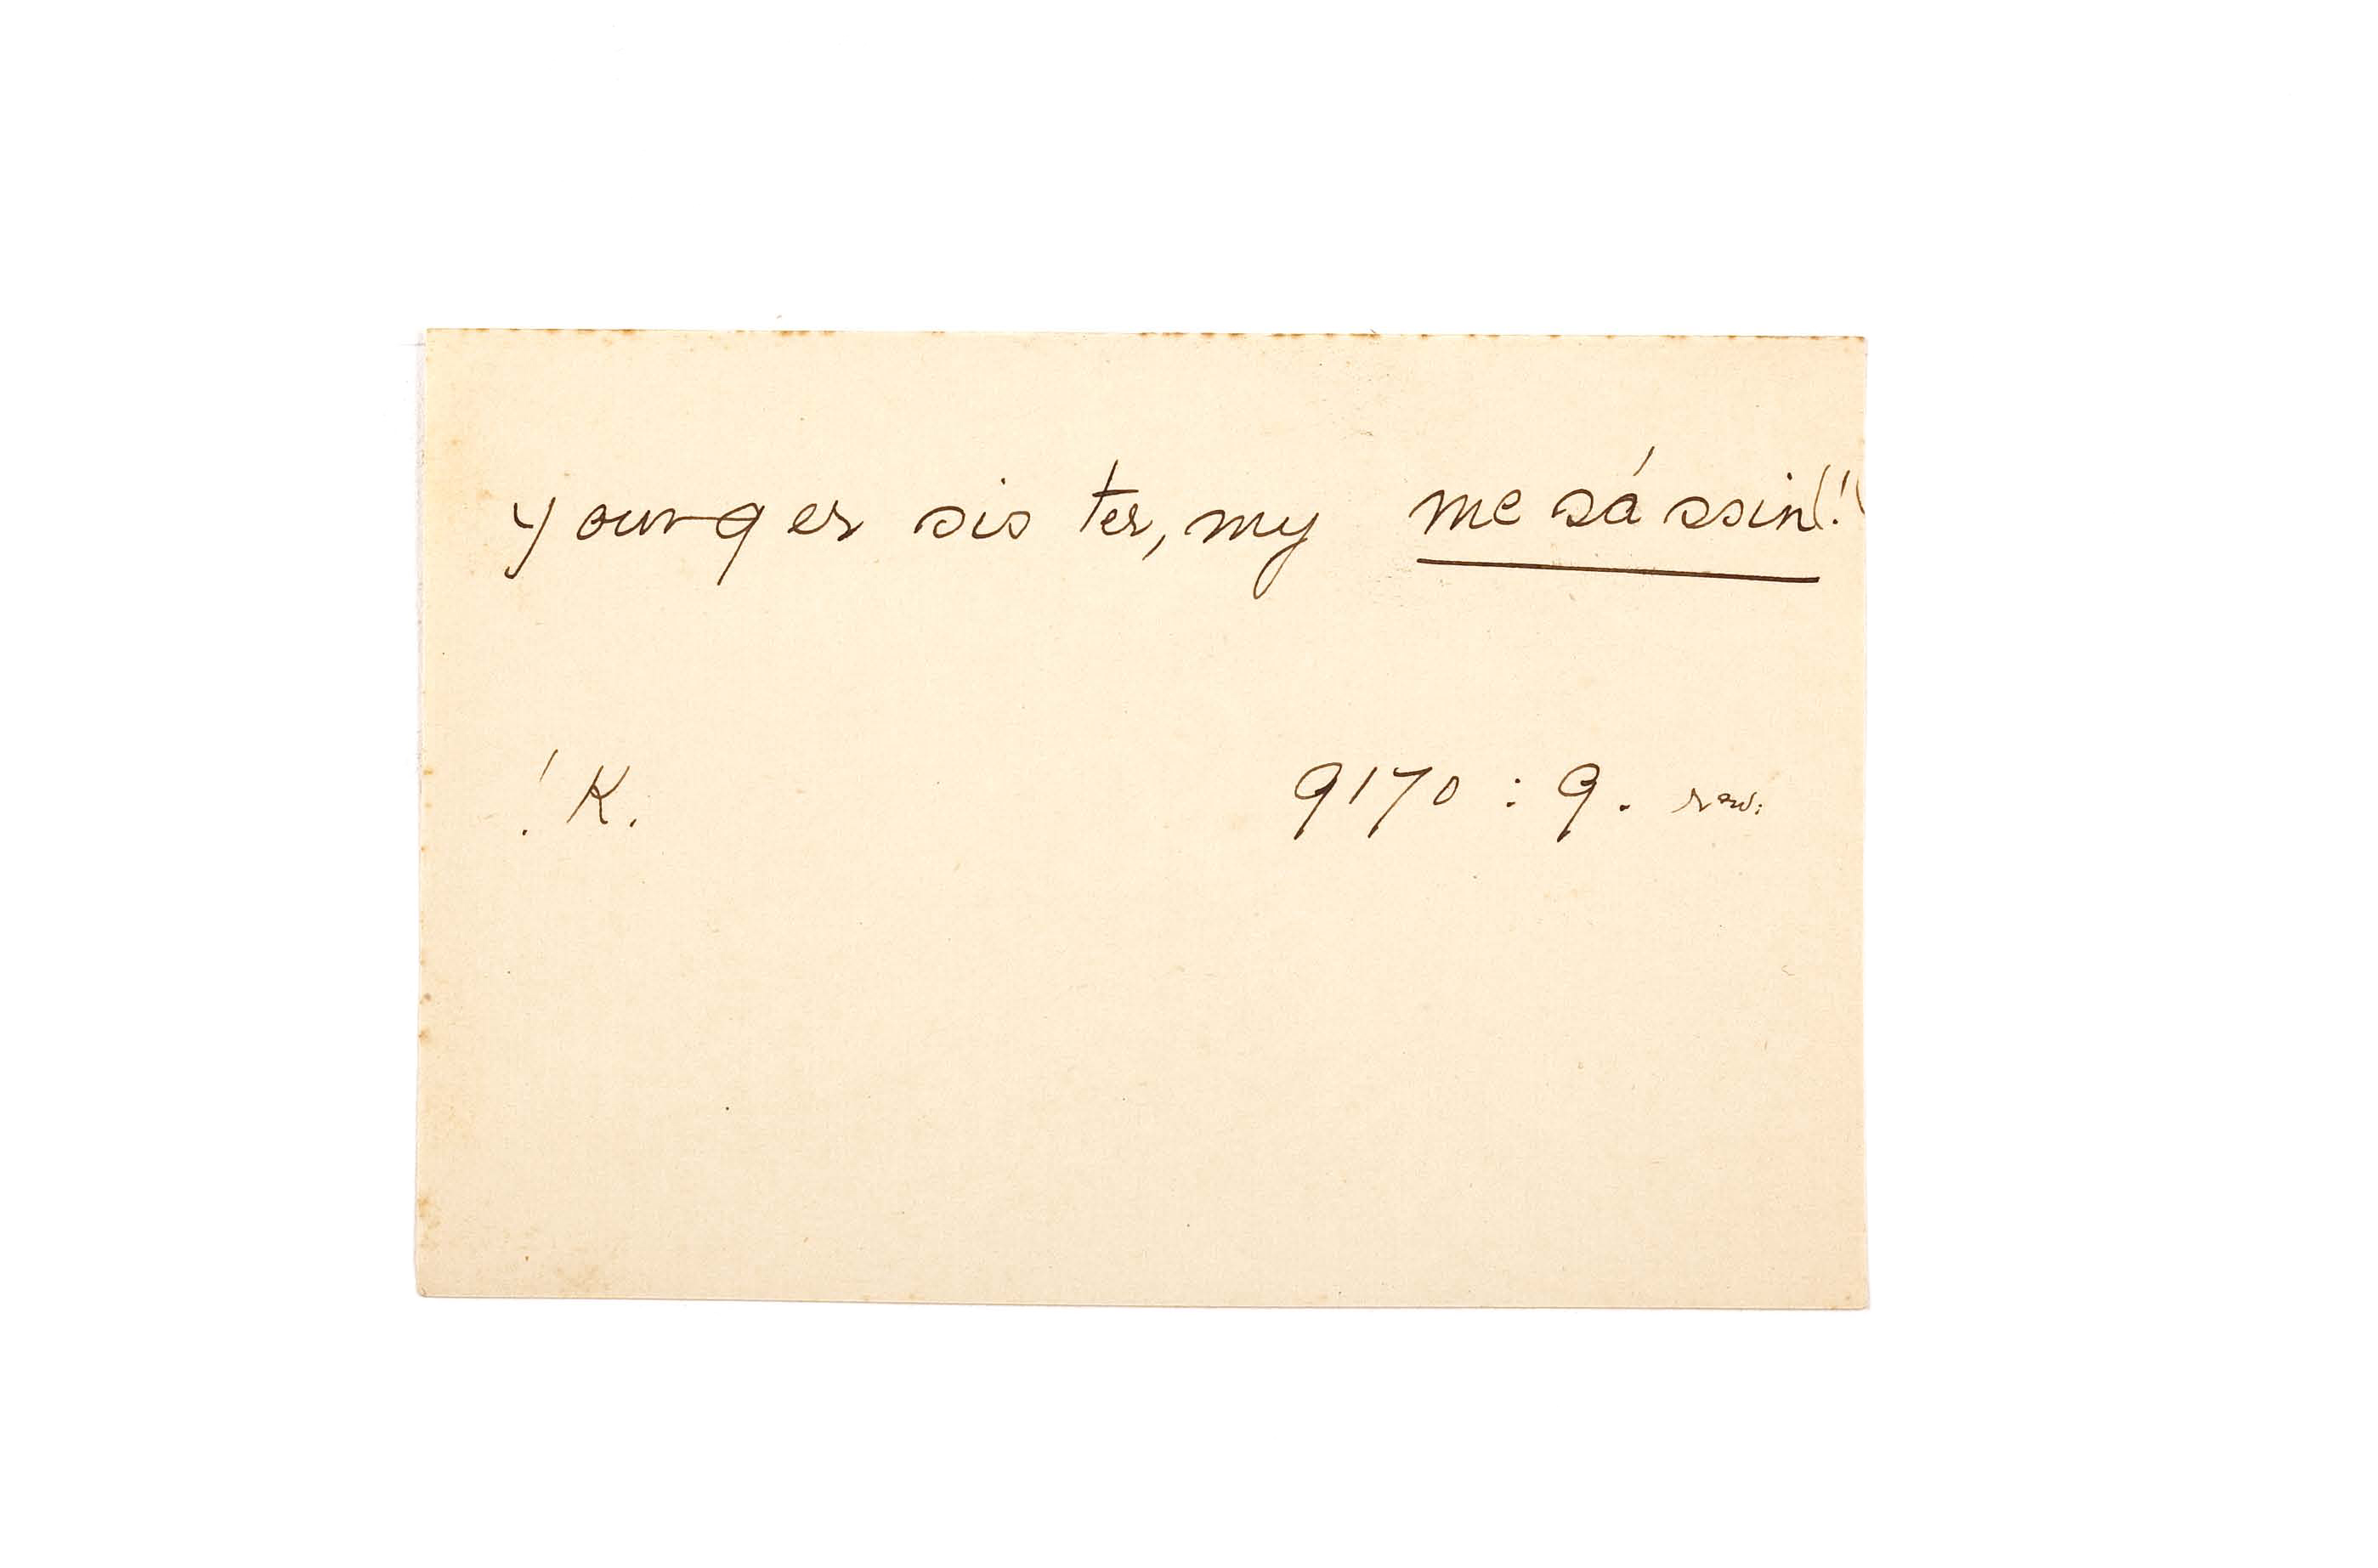 younger sister, my me sá ssin(!)
!K. 9170 : 9. rev: